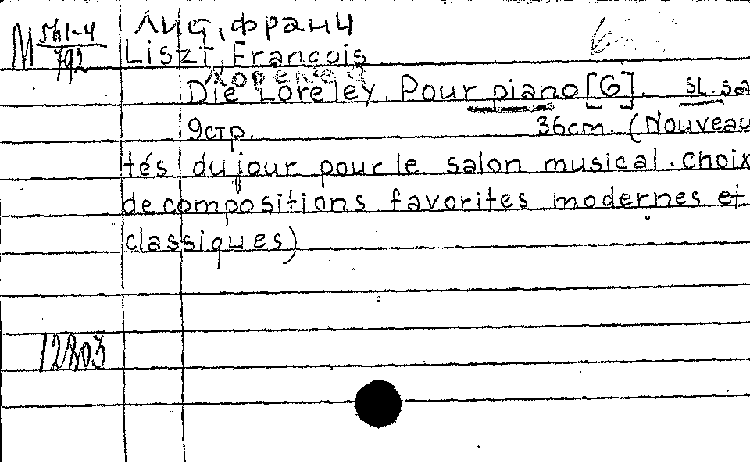 Лист, Франц
М 561-4
792
Liszt, François
Лорелея
Die Loreley. Pour piano [G]. sl. sa
9стр. 36cm. (Nouveau
tés du jour pour le salon musical. Choix
de compositions favorites modernes et
classiques)
12803